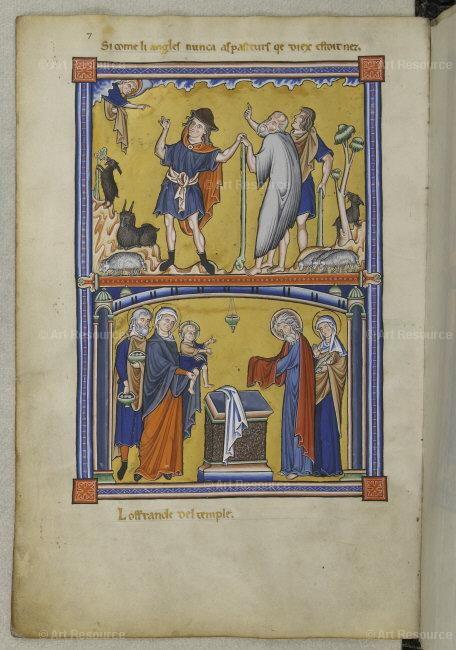 7
Si come li angles nunca as pasturs qe diex estoit nez.
L offrande del temple.
© Art Resource
© Art Resource
© Art Resource
© Art Resource
© Art Resource
© Art Resource